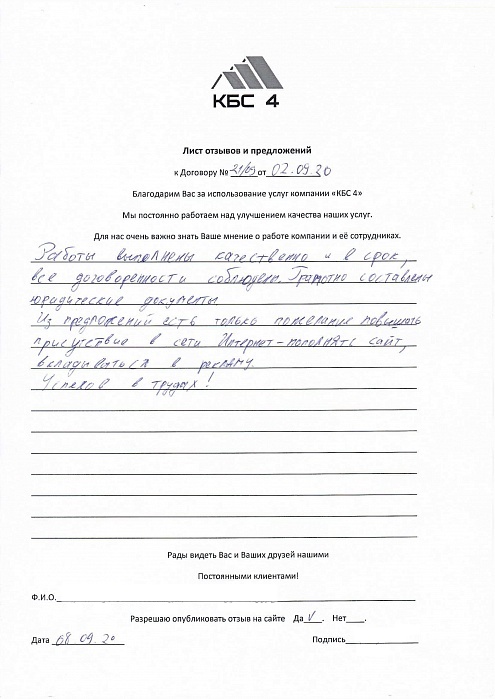 КБС 4
Лист отзывов и предложений
к Договору № 21/09 от 02.09.20
Благодарим Вас за использование услуг компании «КБС 4»
Мы постоянно работаем над улучшением качества наших услуг.
Для нас очень важно знать Ваше мнение о работе компании и её сотрудниках.
Работы выполнены качественно и в срок,
все договоренности соблюдены. Грамотно составлены
юридические документы
Из предложений есть только пожелание повышать
присутствие в сети Интернет - пополнять сайт,
вкладываться в рекламу.
Успехов в трудах!
Рады видеть Вас и Ваших друзей нашими
Постоянными клиентами!
Ф.И.О.
Разрешаю опубликовать отзыв на сайте Да V . Нет .
Дата 08.09.20 Подпись